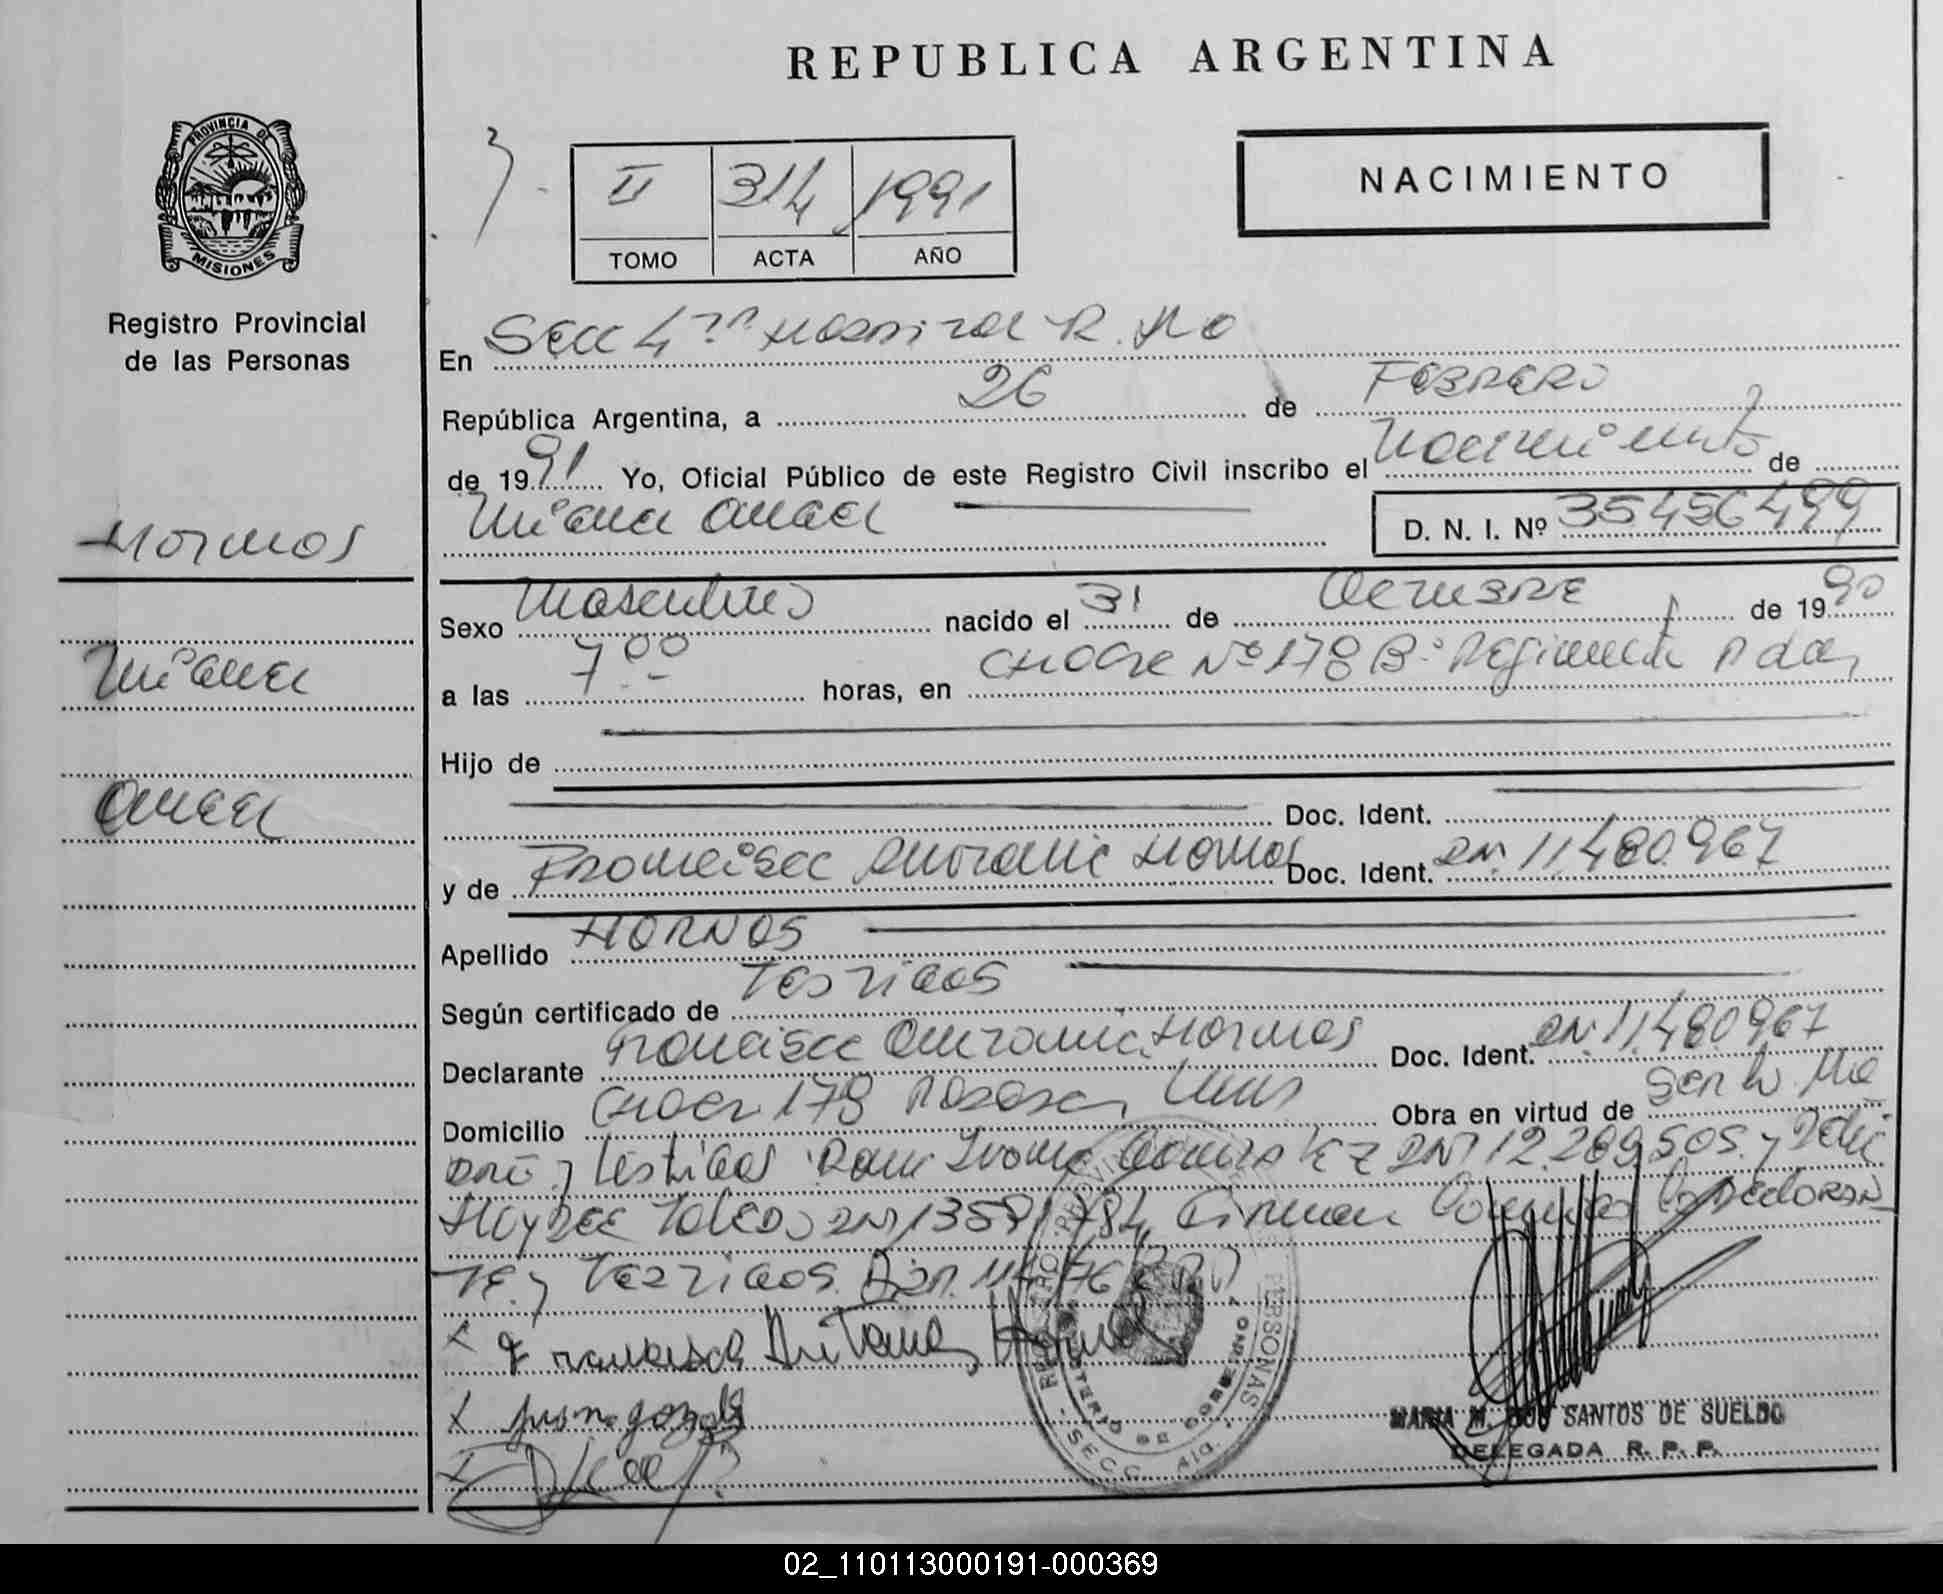 REPUBLICA ARGENTINA
PROVINCIA DE
MISIONES
Registro Provincial
de las Personas
II 314 1991
TOMO ACTA AÑO
NACIMIENTO
En Secc 4ta Hospital R.
República Argentina, a 26 de FEBRERO
de 1991 Yo, Oficial Público de este Registro Civil inscribo el nacimiento de
Miguel Angel D. N. I. Nº 35456499
Hornos
Miguel
Angel
Sexo Masculino nacido el 31 de OCTUBRE de 1990
a las 7 00 horas, en CHACRA Nº 178 Bº Pdas
Hijo de
Doc. Ident.
y de Francisca Antonia Hornos Doc. Ident. DNI 11.480.967
Apellido HORNOS
Según certificado de Testigos
Declarante Francisca Hornos Doc. Ident. DNI 11.480.967
Domicilio Chacra 178 Obra en virtud de ser la Ma
dre y testigos Gonzalez DNI 12.289.505 y
Haydee Toledo DNI 13591784 Firman Conmigo la Declaran
Te y Testigos.
X Francisca
X
X
REGISTRO PROVINCIAL DE LAS PERSONAS
MINISTERIO DE GOBIERNO
SECC. 4ta.
MARIA M. DOS SANTOS DE SUELDO
DELEGADA R. P. P.
02_110113000191-000369